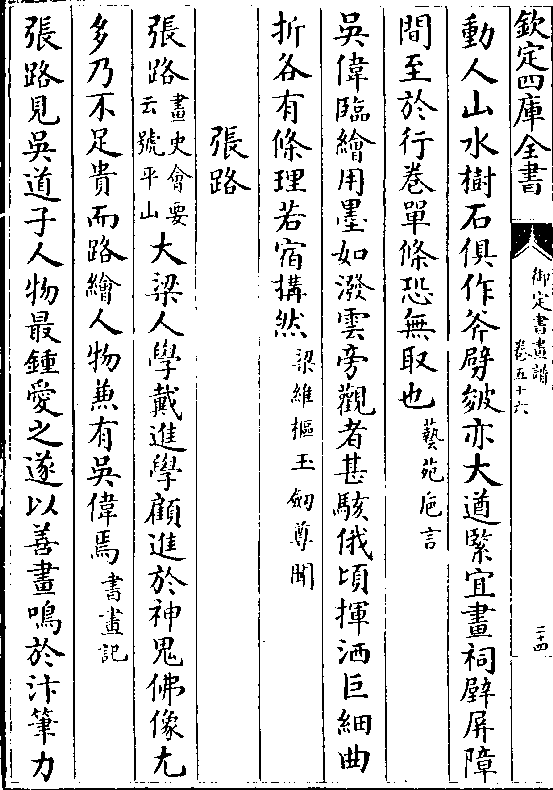 欽定四庫全書
御定書畫譜
卷五十六
二十四
動人山水樹石俱作斧劈皴亦大遒緊宜畫祠壁屏障
間至於行卷單條恐無取也藝苑巵言
吳偉臨繪用墨如潑雲旁觀者甚駭俄頃揮洒巨細曲
折各有條理若宿搆然梁維樞玉劒尊聞
張路
張路畫史會要云號平山大梁人學戴進學顧進於神鬼佛像尤
多乃不足貴而路繪人物兼有吳偉焉書畫記
張路見吳道子人物最鍾愛之遂以善畫鳴於汴筆力